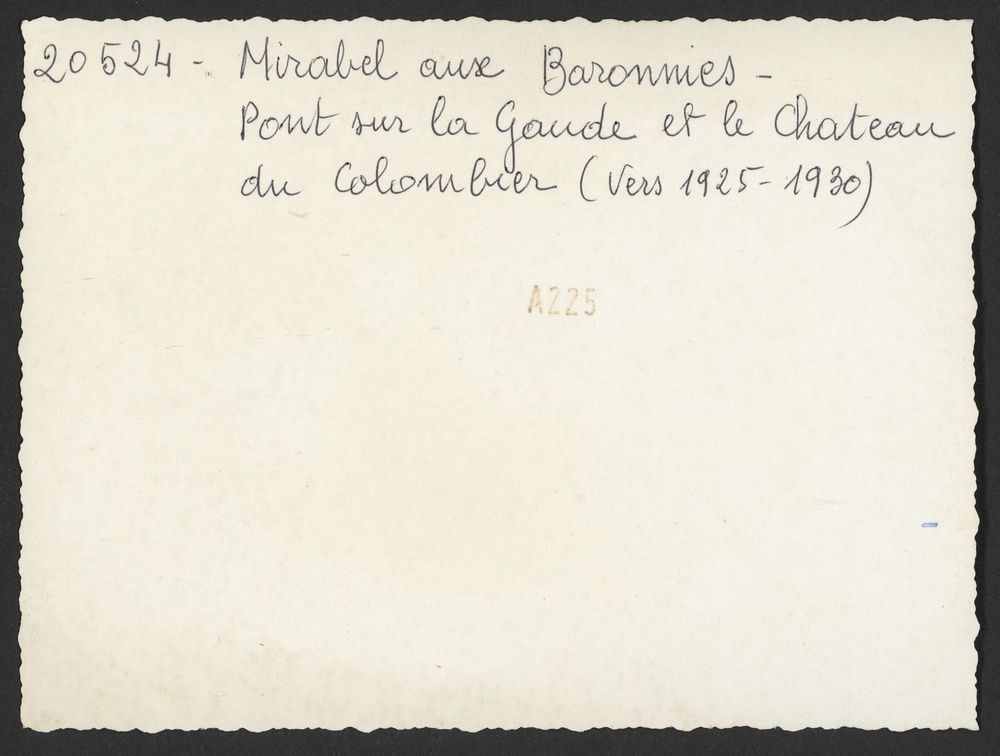 20524 - Mirabel aux Baronnies -
Pont sur la Gaude et le Chateau
du Colombier (Vers 1925-1930)
A225